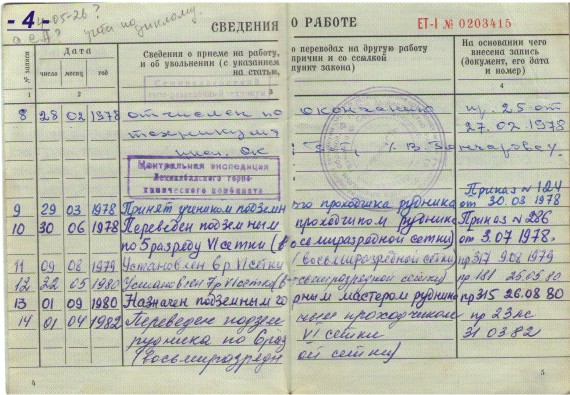 - 4 -
05-26?
учёта по диплому.
СВЕДЕНИЯ О РАБОТЕ
ЕТ-I № 0203415
№ записи
Дата
число месяц год
Сведения о приеме на работу, о переводах на другую работу
и об увольнении (с указанием причин и со ссылкой
на статью, пункт закона)
На основании чего внесена запись (документ, его дата и номер)
1 2 3 4
8 28 02 1978 отчислен по окончанию пр. 25 от
техникума 27.02.1978
Центральная экспедиция
горно-
химического комбината
9 29 03 1978 Принят учеником подземного проходчика рудника Приказ № 124 от 30.03 1978
10 30 06 1978 Переведен подземным проходчиком рудника Приказ № 286
по 5 разряду VI сетки (восьмиразрядной сетки) от 3.07 1978.
11 09 08 1979 Установлен 6 р VI сетки (восьмиразрядной сетки) пр 317 9.08 1979
12 22 05 1980 Установлен 7р VI сетки (восьмиразрядной сетки) пр 181 26.05.80
13 01 09 1980 Назначен подземным горным мастером рудника пр 315 26.08 80
14 01 04 1982 Переведен подземным проходчиком пр 23лс
рудника по 6 раз VI сетки 31.03.82
(восьмиразрядной сетки)
4
5